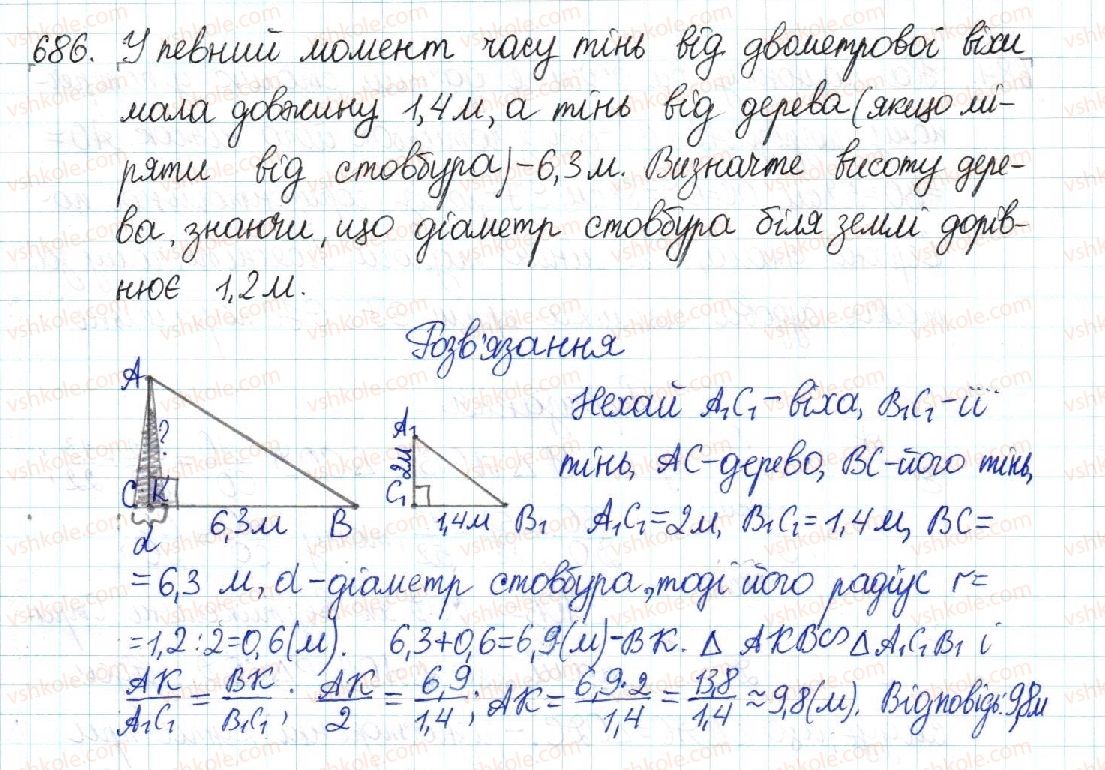 686. У певний момент часу тінь від двометрової віхи
мала довжину 1,4 м, а тінь від дерева (якщо мі-
ряти від стовбура) – 6,3 м. Визначте висоту дере-
ва, знаючи, що діаметр стовбура біля землі дорів-
нює 1,2 м.
Розв'язання
A
?
C K
d
6,3 м B
A₁
2м
C₁
1,4м B₁
Нехай A₁C₁ – віха, B₁C₁ – її
тінь, AC – дерево, BC – його тінь,
A₁C₁ = 2 м, B₁C₁ = 1,4 м, BC =
= 6,3 м, d – діаметр стовбура, тоді його радіус r =
= 1,2 : 2 = 0,6 (м). 6,3 + 0,6 = 6,9 (м) – BK. Δ AKB ∽ Δ A₁C₁B₁ і
AK/A₁C₁ = BK/B₁C₁; AK/2 = 6,9/1,4; AK = 6,9·2/1,4 = 13,8/1,4 ≈ 9,8 (м). Відповідь: 9,8 м
vshkole.com